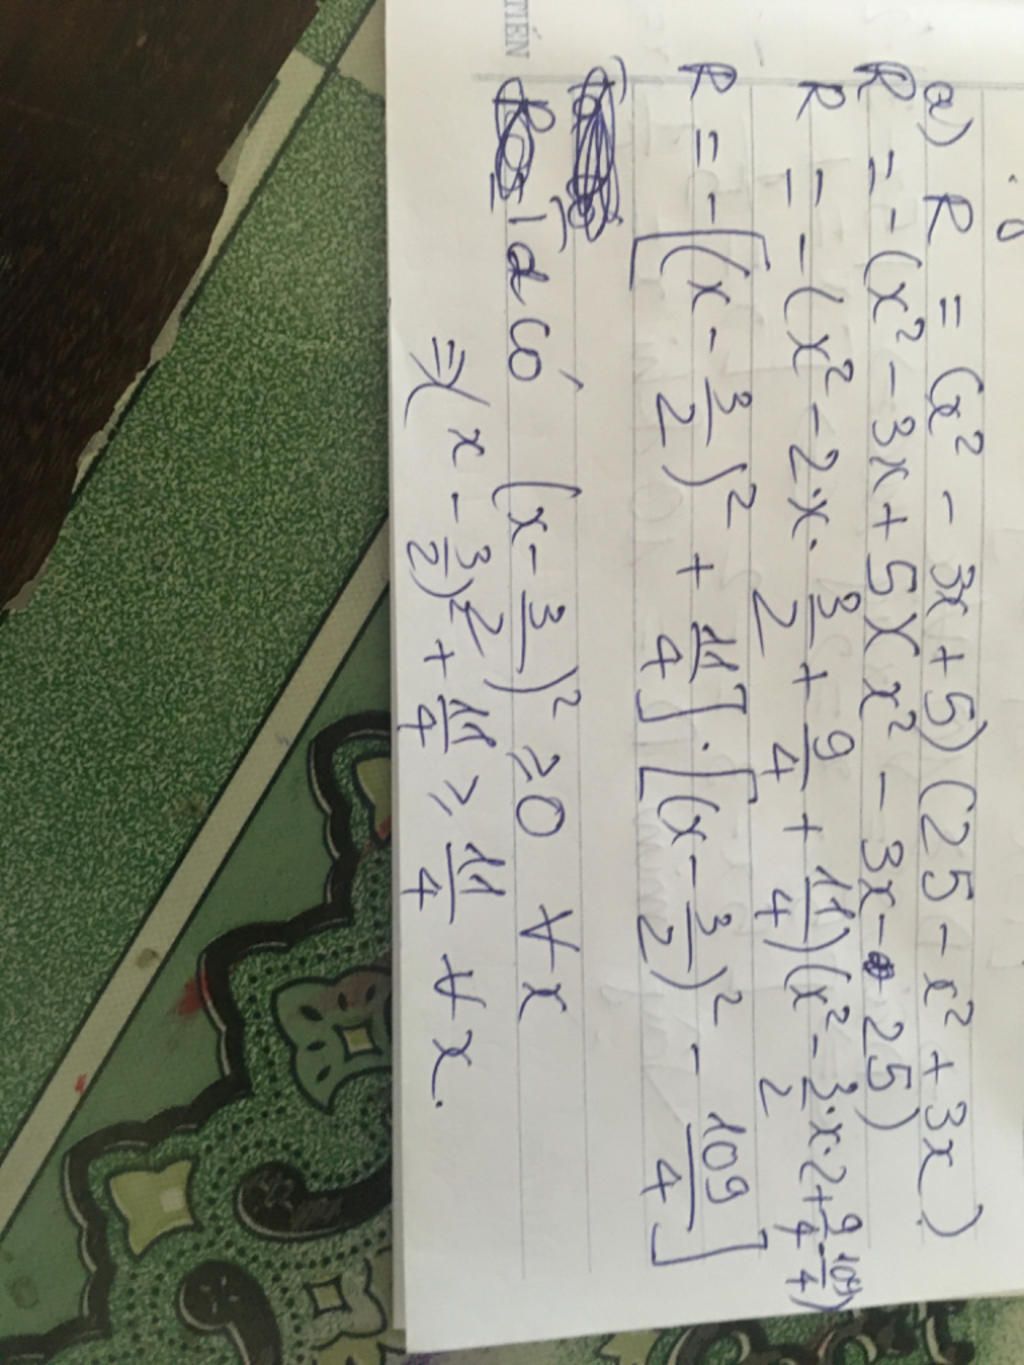 TIẾN
a) R = (x² - 3x + 5)(25 - x² + 3x)
R = -(x² - 3x + 5)(x² - 3x - 25)
R = -(x² - 2·x·3/2 + 9/4 + 11/4)(x² - 3/2·x·2 + 9/4 - 109/4)
R = -[(x - 3/2)² + 11/4]·[(x - 3/2)² - 109/4]
Ta có (x - 3/2)² ≥ 0 ∀x
⇒ (x - 3/2)² + 11/4 ≥ 11/4 ∀x.